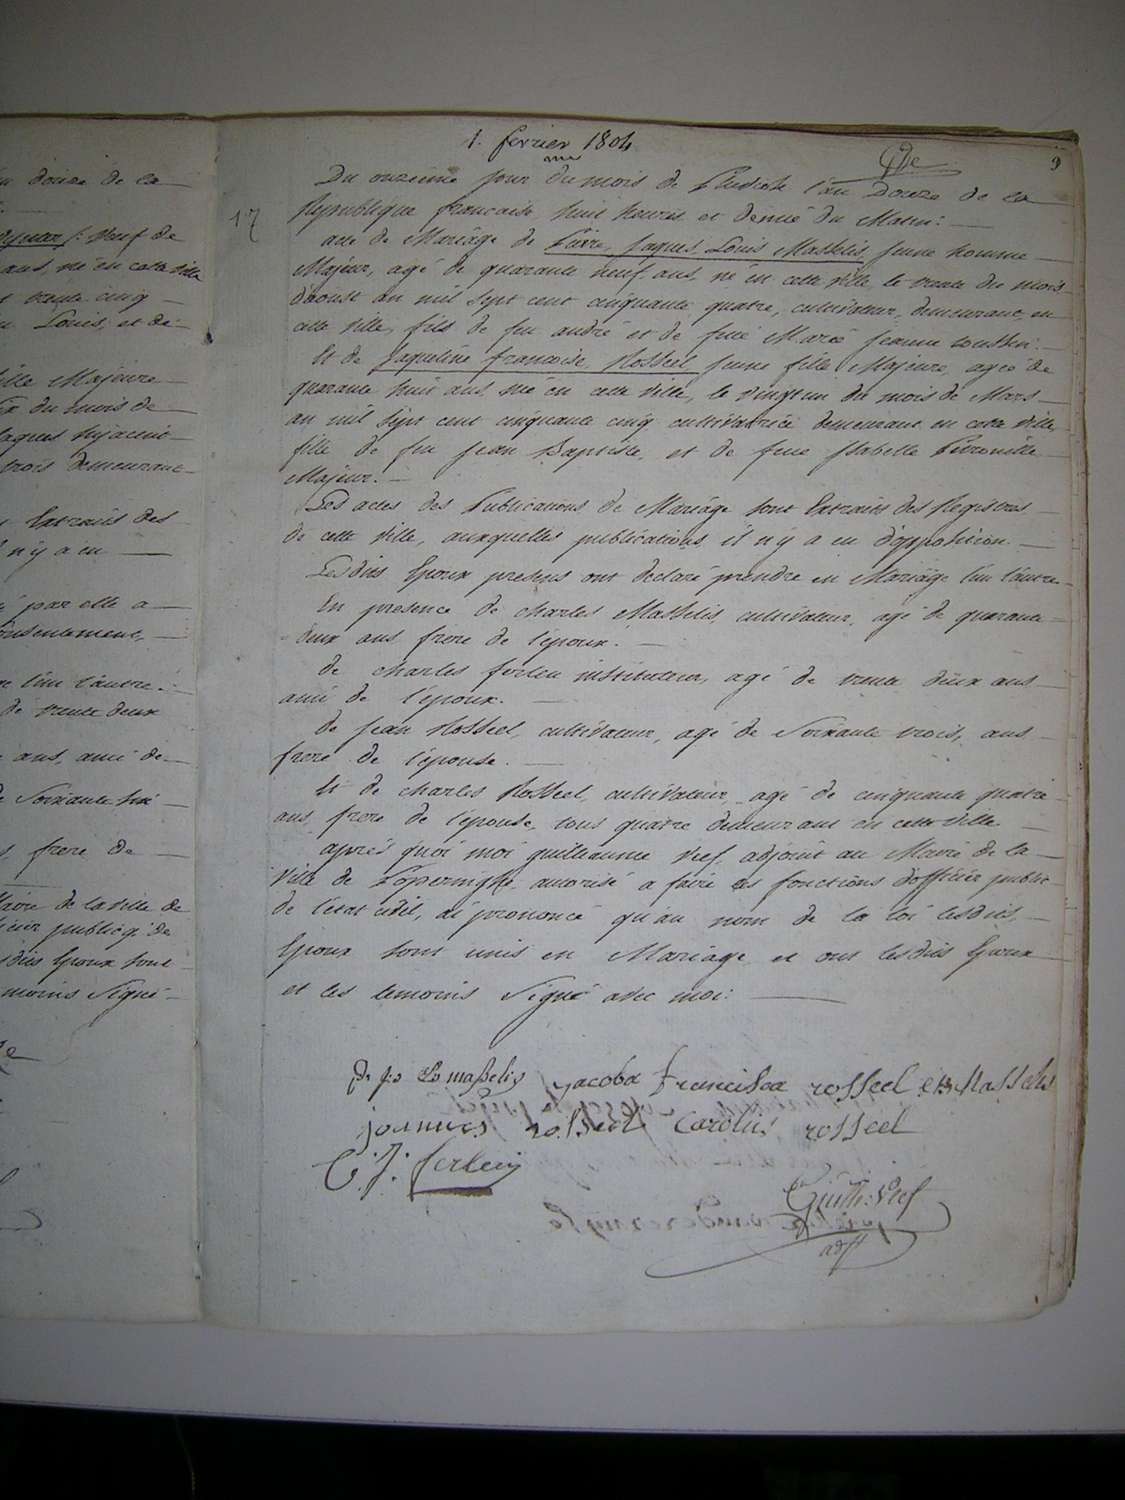 n douze de la
Neuf de
ans, né en cette ville
t trente cinq
Louis, et de
ille Majeure
du mois de
Jaques hyacint
trois demeurant
Extraits des
n'y a eu
par elle a
onsentement,
l'un l'autre.
de trente deux
ans, ami de
de Soixante
frere de
Maire de la ville de
icier publiq de
dits Epoux sont
moins Signé
1. fevrier 1804
9
17
Du onzieme jour du mois de Pluviose l'an Douze de la
Republique francaise, huit heures et demie du Matin:
acte de Mariage de Pierre, Jaques, Louis Masselis, jeune homme
Majeur, agé de quarante neuf ans, né en cette ville, le trente du mois
d'aoust an mil sept cent cinquante quatre, cultivateur, demeurant en
cette ville, fils de feu andré et de feue Marie Jeanne
Et de Jaqueline francoise Rosseel jeune fille Majeure, agée de
quarante huit ans, née en cette ville, le vingt un du mois de Mars
an mil sept cent cinquante cinq, cultivatrice demeurant en cette ville,
fille de feu Jean Baptiste, et de feue Isabelle Petronille
Majeur.
Les actes des Publications de Mariage sont Extraits des Registres
de cette ville, auxquelles publications, il n'y a eu d'opposition.
Lesdits Epoux presens ont declaré prendre en Mariage l'un l'autre
En presence de charles Masselis, cultivateur, agé de quarante
deux ans, frere de l'epoux.
de charles ferlin instituteur, agé de trente deux ans
ami de l'epoux.
de Jean Rosseel, cultivateur, agé de Soixante trois, ans
frere de l'epouse.
Et de charles Rosseel, cultivateur, agé de cinquante quatre
ans, frere de l'epouse, tous quatre demeurant en cette ville
après quoi moi guillaume Vief, adjoint au Maire de la
Ville de Poperinghe, autorisé a faire les fonctions d'officier public
de l'etat civil, ai prononcé qu'au nom de la loi lesdits
Epoux sont unis en Mariage, et ont lesdits Epoux
et les temoins Signé avec moi:
Masselis Jacoba francisca rosseel Masselis
Joannes rosseel Carolus rosseel
C. J. ferlin
Guill: Vief
adjt